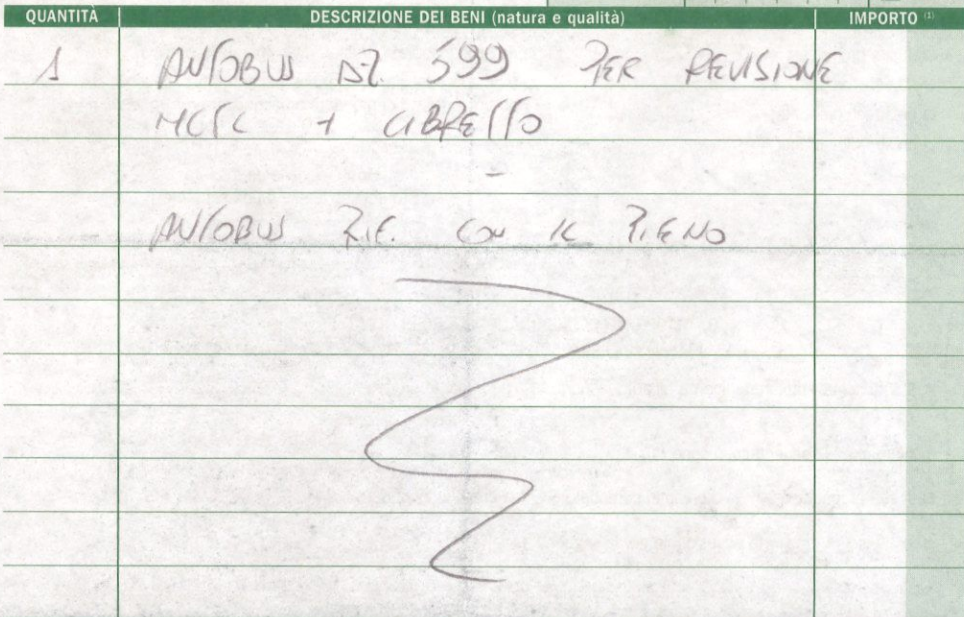 QUANTITÀ DESCRIZIONE DEI BENI (natura e qualità) IMPORTO (1)
1 AUTOBUS AZ. 599 PER REVISIONE
MCTC + LIBRETTO
-
AUTOBUS CON IL PIENO